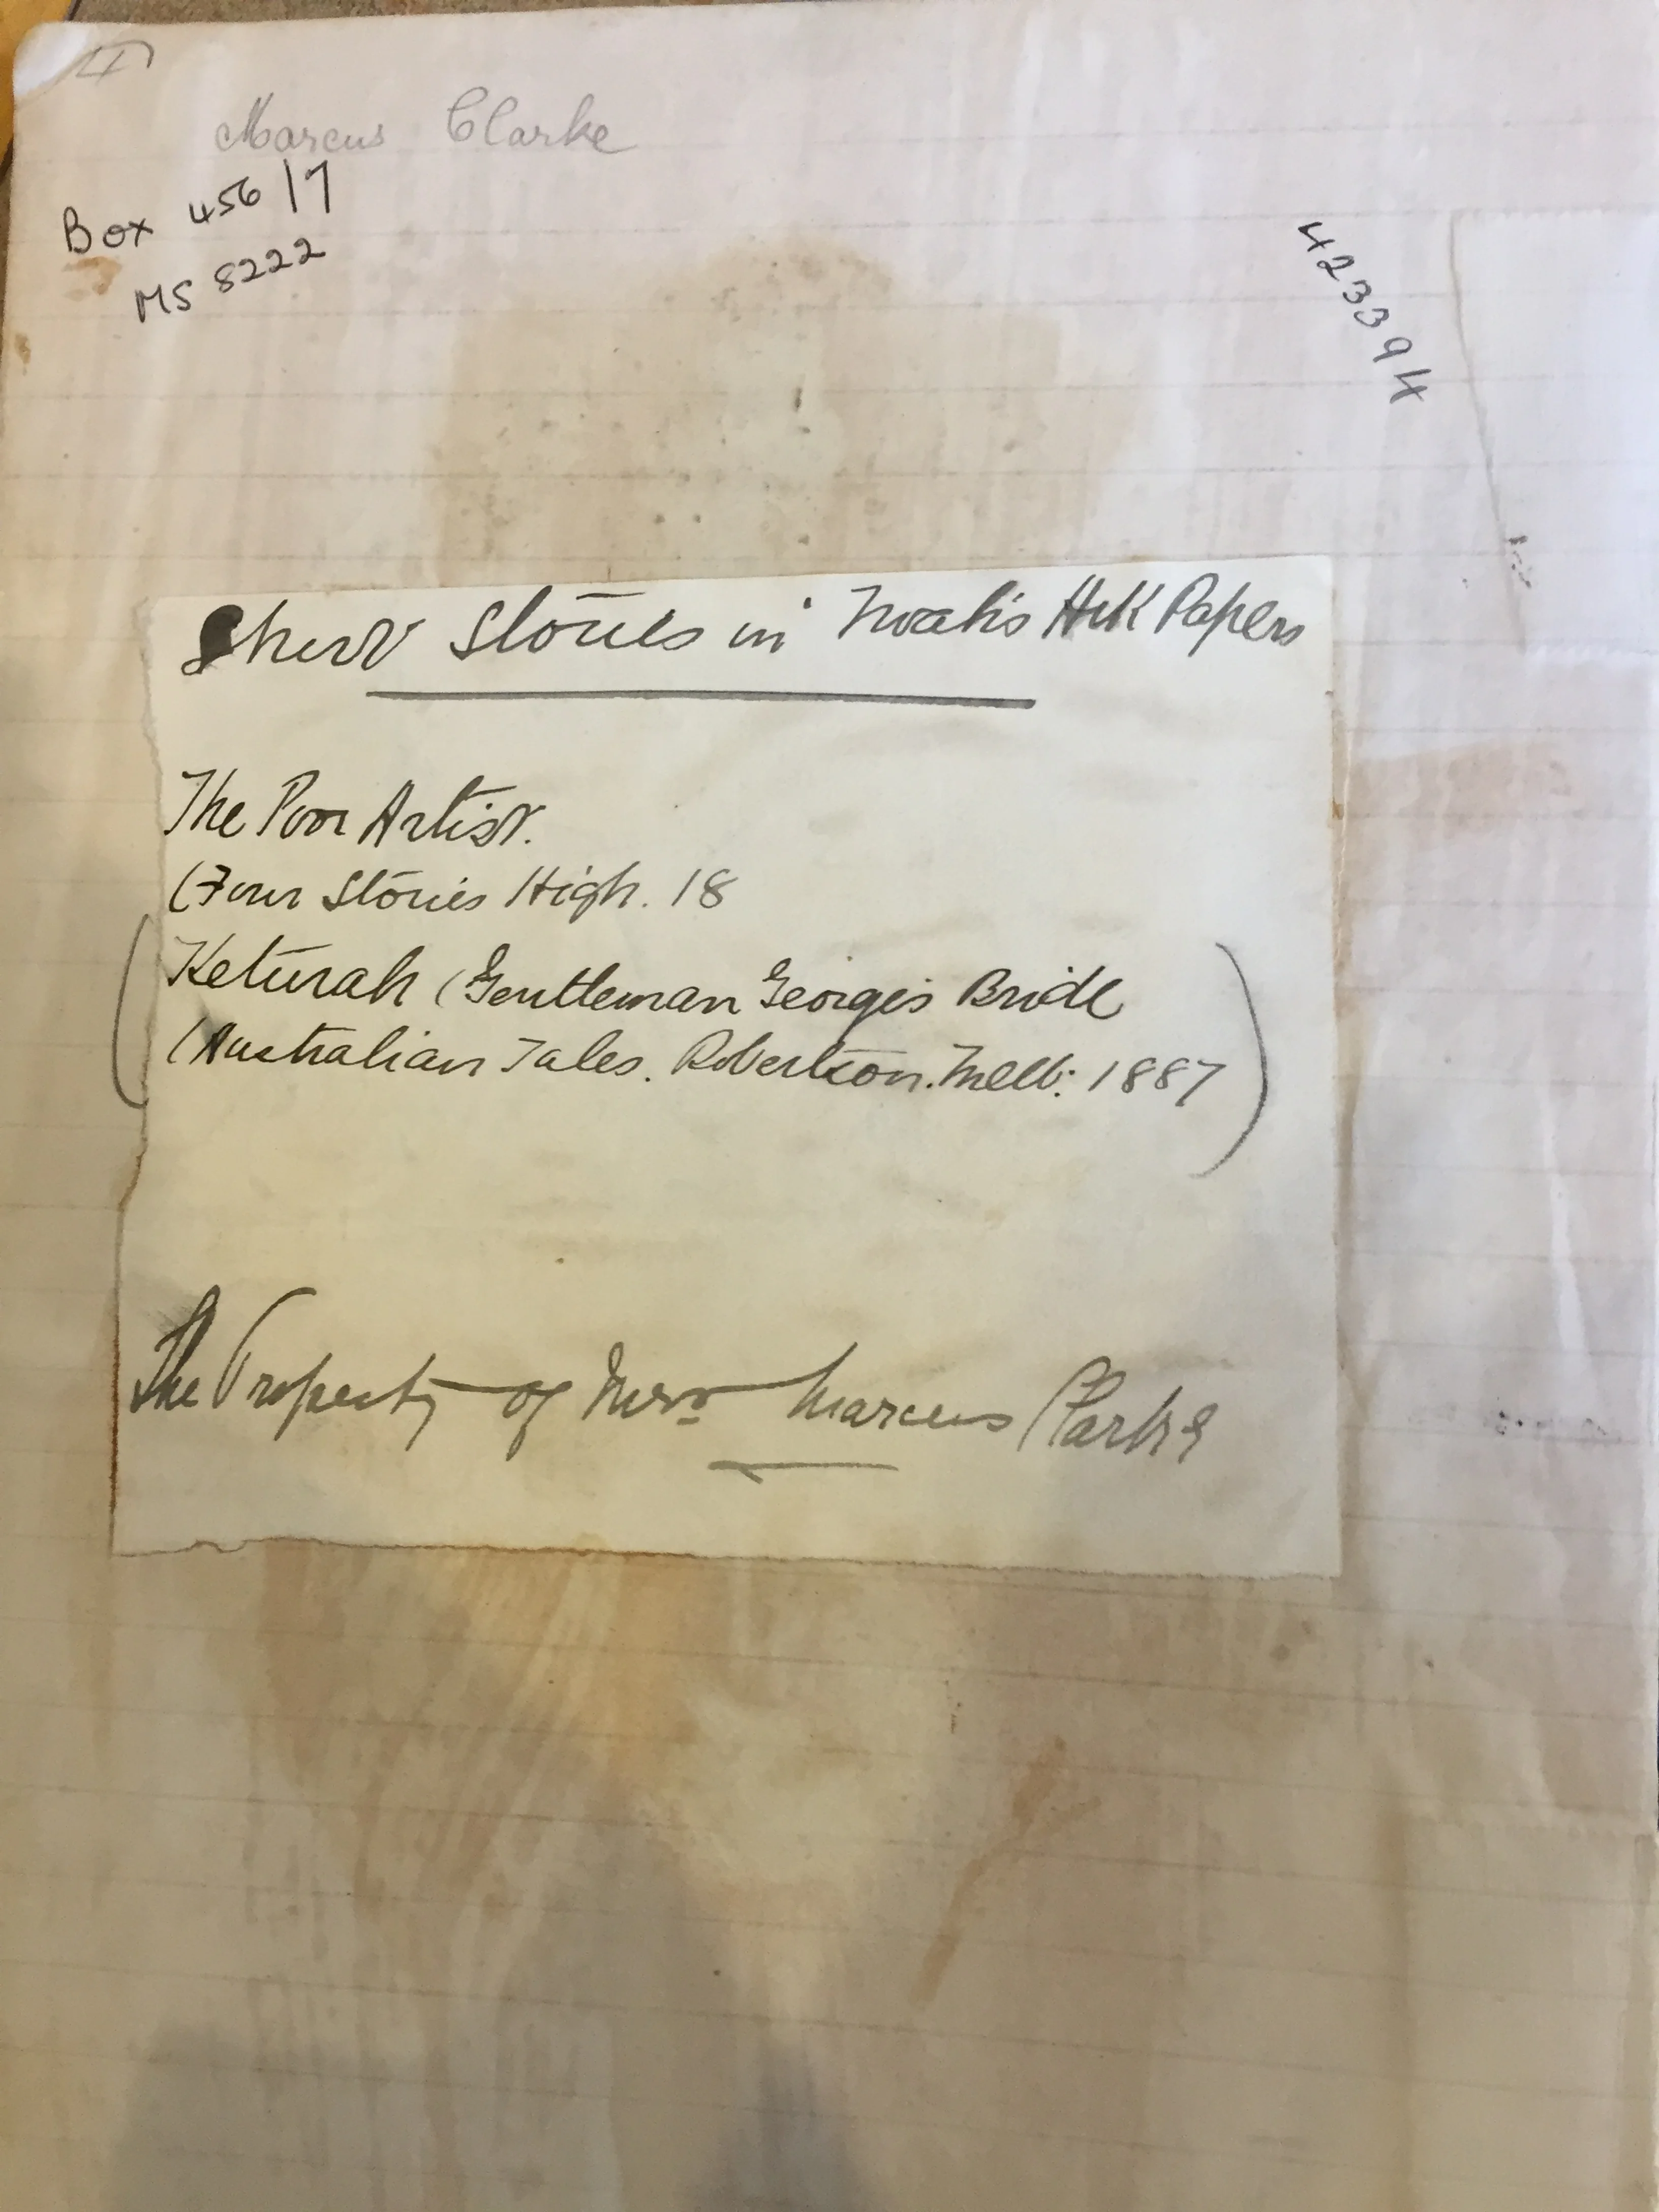 Marcus Clarke
Box 456/7
MS 8222
423394
Short Stories in Noah's Ark Papers
The Poor Artist.
(Four Stories High. 18
Keturah (Gentleman George's Bride
(Australian Tales. Robertson. Melb: 1887
The Property of Mrs Marcus Clarke